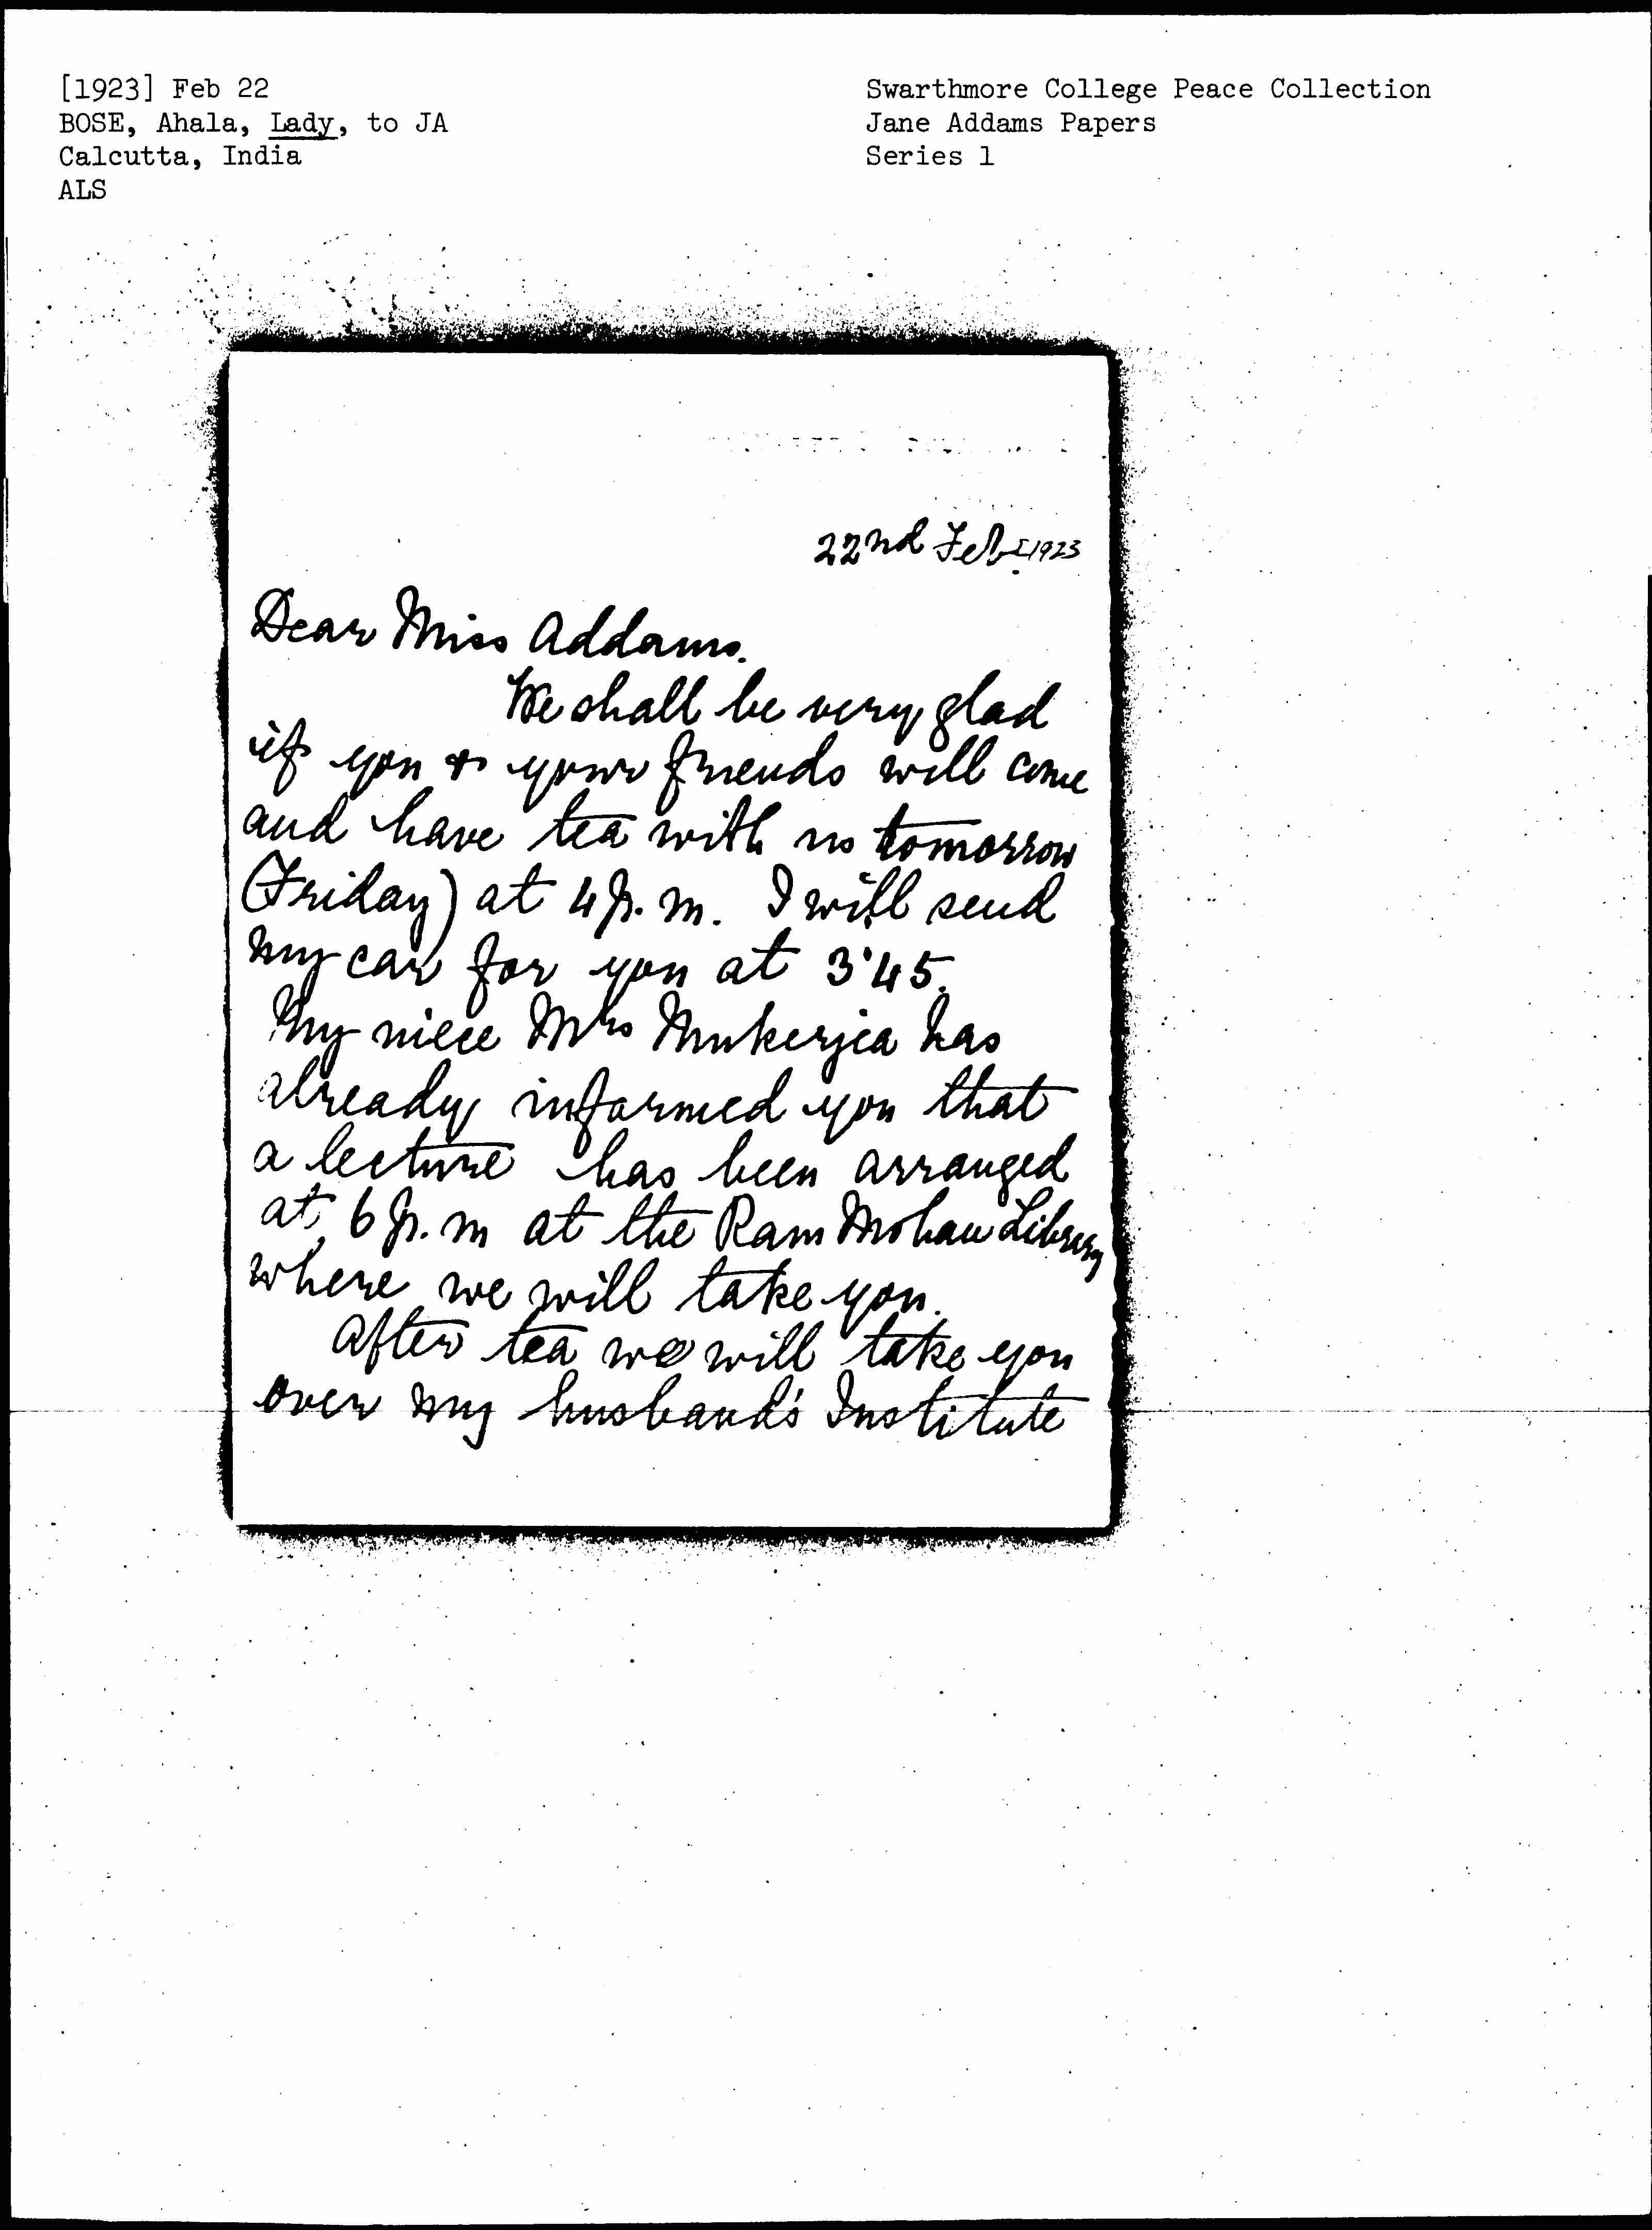 [1923] Feb 22
BOSE, Ahala, Lady, to JA
Calcutta, India
ALS
Swarthmore College Peace Collection
Jane Addams Papers
Series 1
22nd Feb [1923
Dear Miss Addams.
We shall be very glad
if you & your friends will come
and have tea with us tomorrow
(Friday) at 4 p. m. I will send
my car for you at 3'45.
My niece Mrs Mukerjea has
already informed you that
a lecture has been arranged
at 6 p. m at the Ram Mohan Library
where we will take you.
After tea we will take you
over my husband's Institute